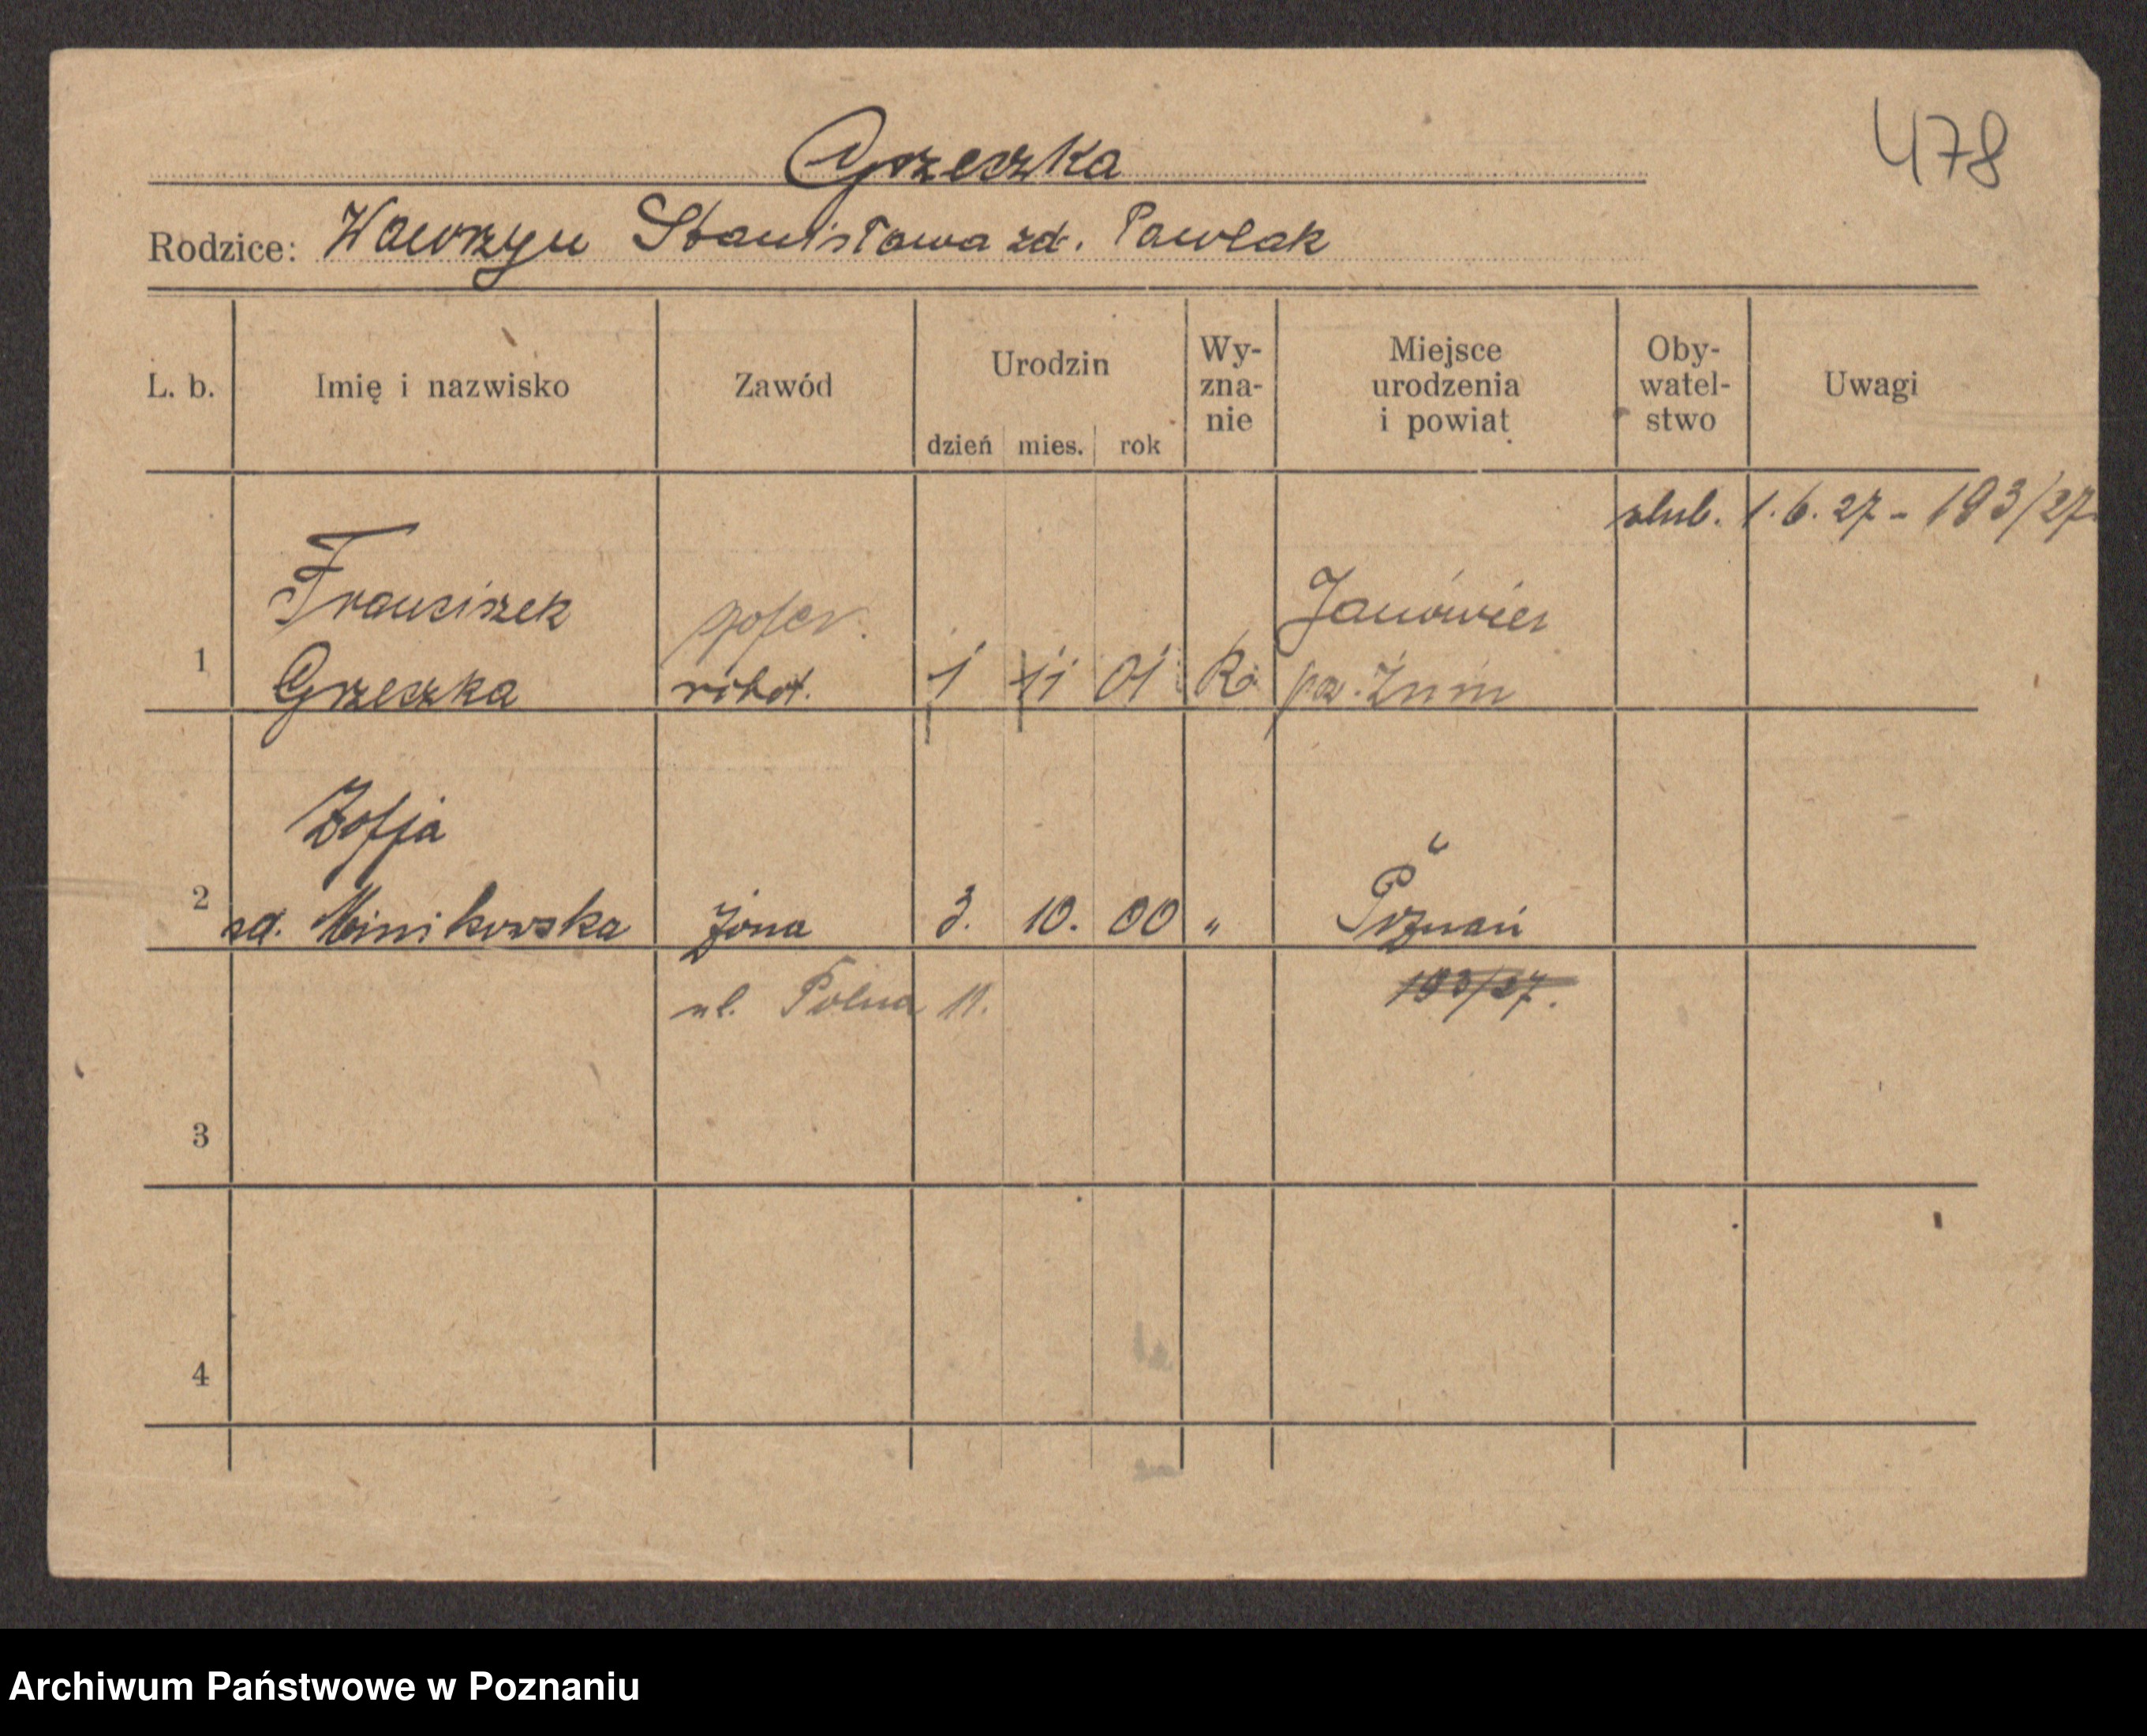 478
Grzeszka
Rodzice: Wawrzyn Stanisława zd. Pawlak
L. b. Imię i nazwisko Zawód Urodzin dzień mies. rok Wy-zna-nie Miejsce urodzenia i powiat Oby-watel-stwo Uwagi
slub. 1. 6. 27 - 193/27.
Franciszek Janówiec
1 Grzeszka robot. 1 11 01 R. pow. Żnin
Zofja "
2 zd. Minikowska żona 3. 10. 00 " Poznań
ul. Polna 11. 193/27.
3
4
Archiwum Państwowe w Poznaniu